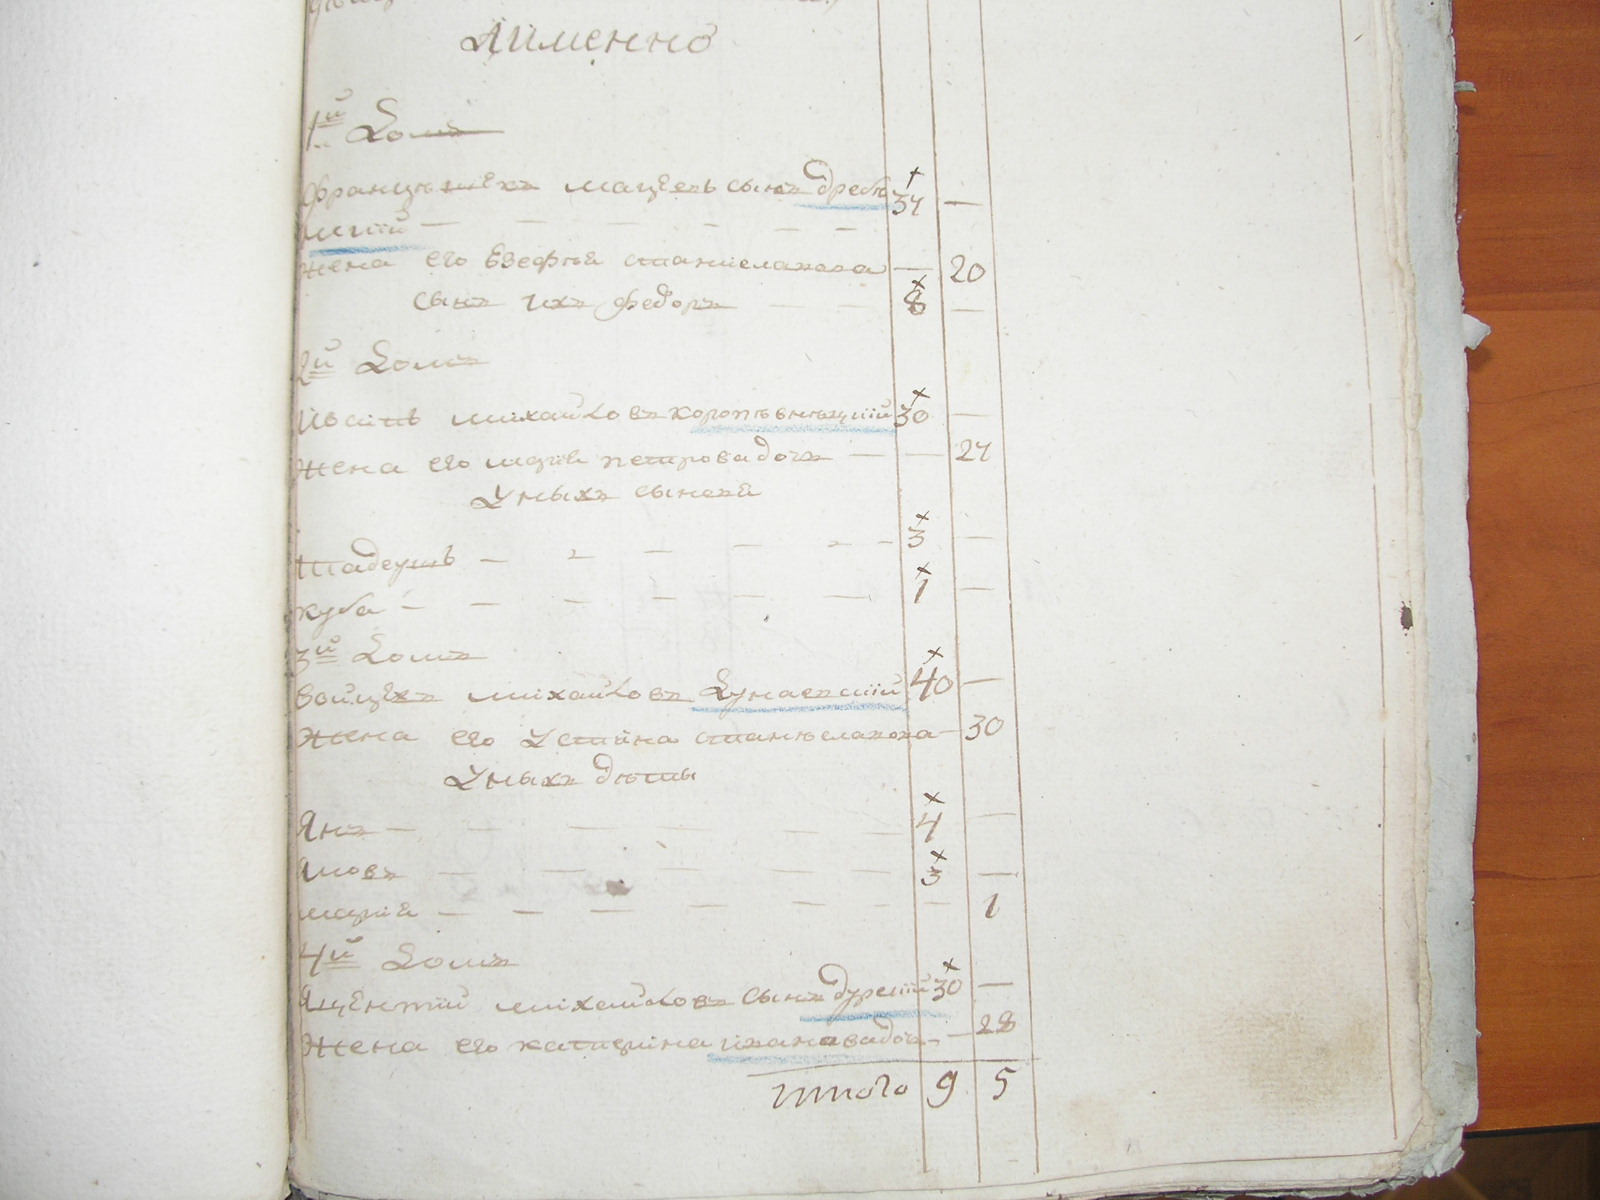 А имменно
1й Домъ
Францишекъ мацеевъ сынъ Дребн 34 —
ский
жена его Юзефта станиславова — 20
сынъ ихъ федоръ 8 —
2й Домъ
михайловъ 30 —
жена его петрова дочь — 24
У ныхъ сыновя
тадеушъ 3 —
куба 1 —
3й Домъ
войцехъ михайловъ Дунаевский 40 —
жена его Устина станиславова — 30
У ныхъ дѣты
Янъ 4 —
Яковъ 3 —
— 1
4й Домъ
Яцентий михайловъ сынъ бурский 30 —
жена его катерина ивановадочь — 28
итого 9 5